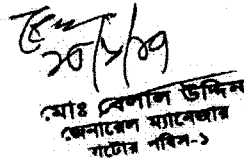 ১৮/১/১৭
মোঃ বেলাল উদ্দিন
জেনারেল ম্যানেজার
নাটোর পবিস-১